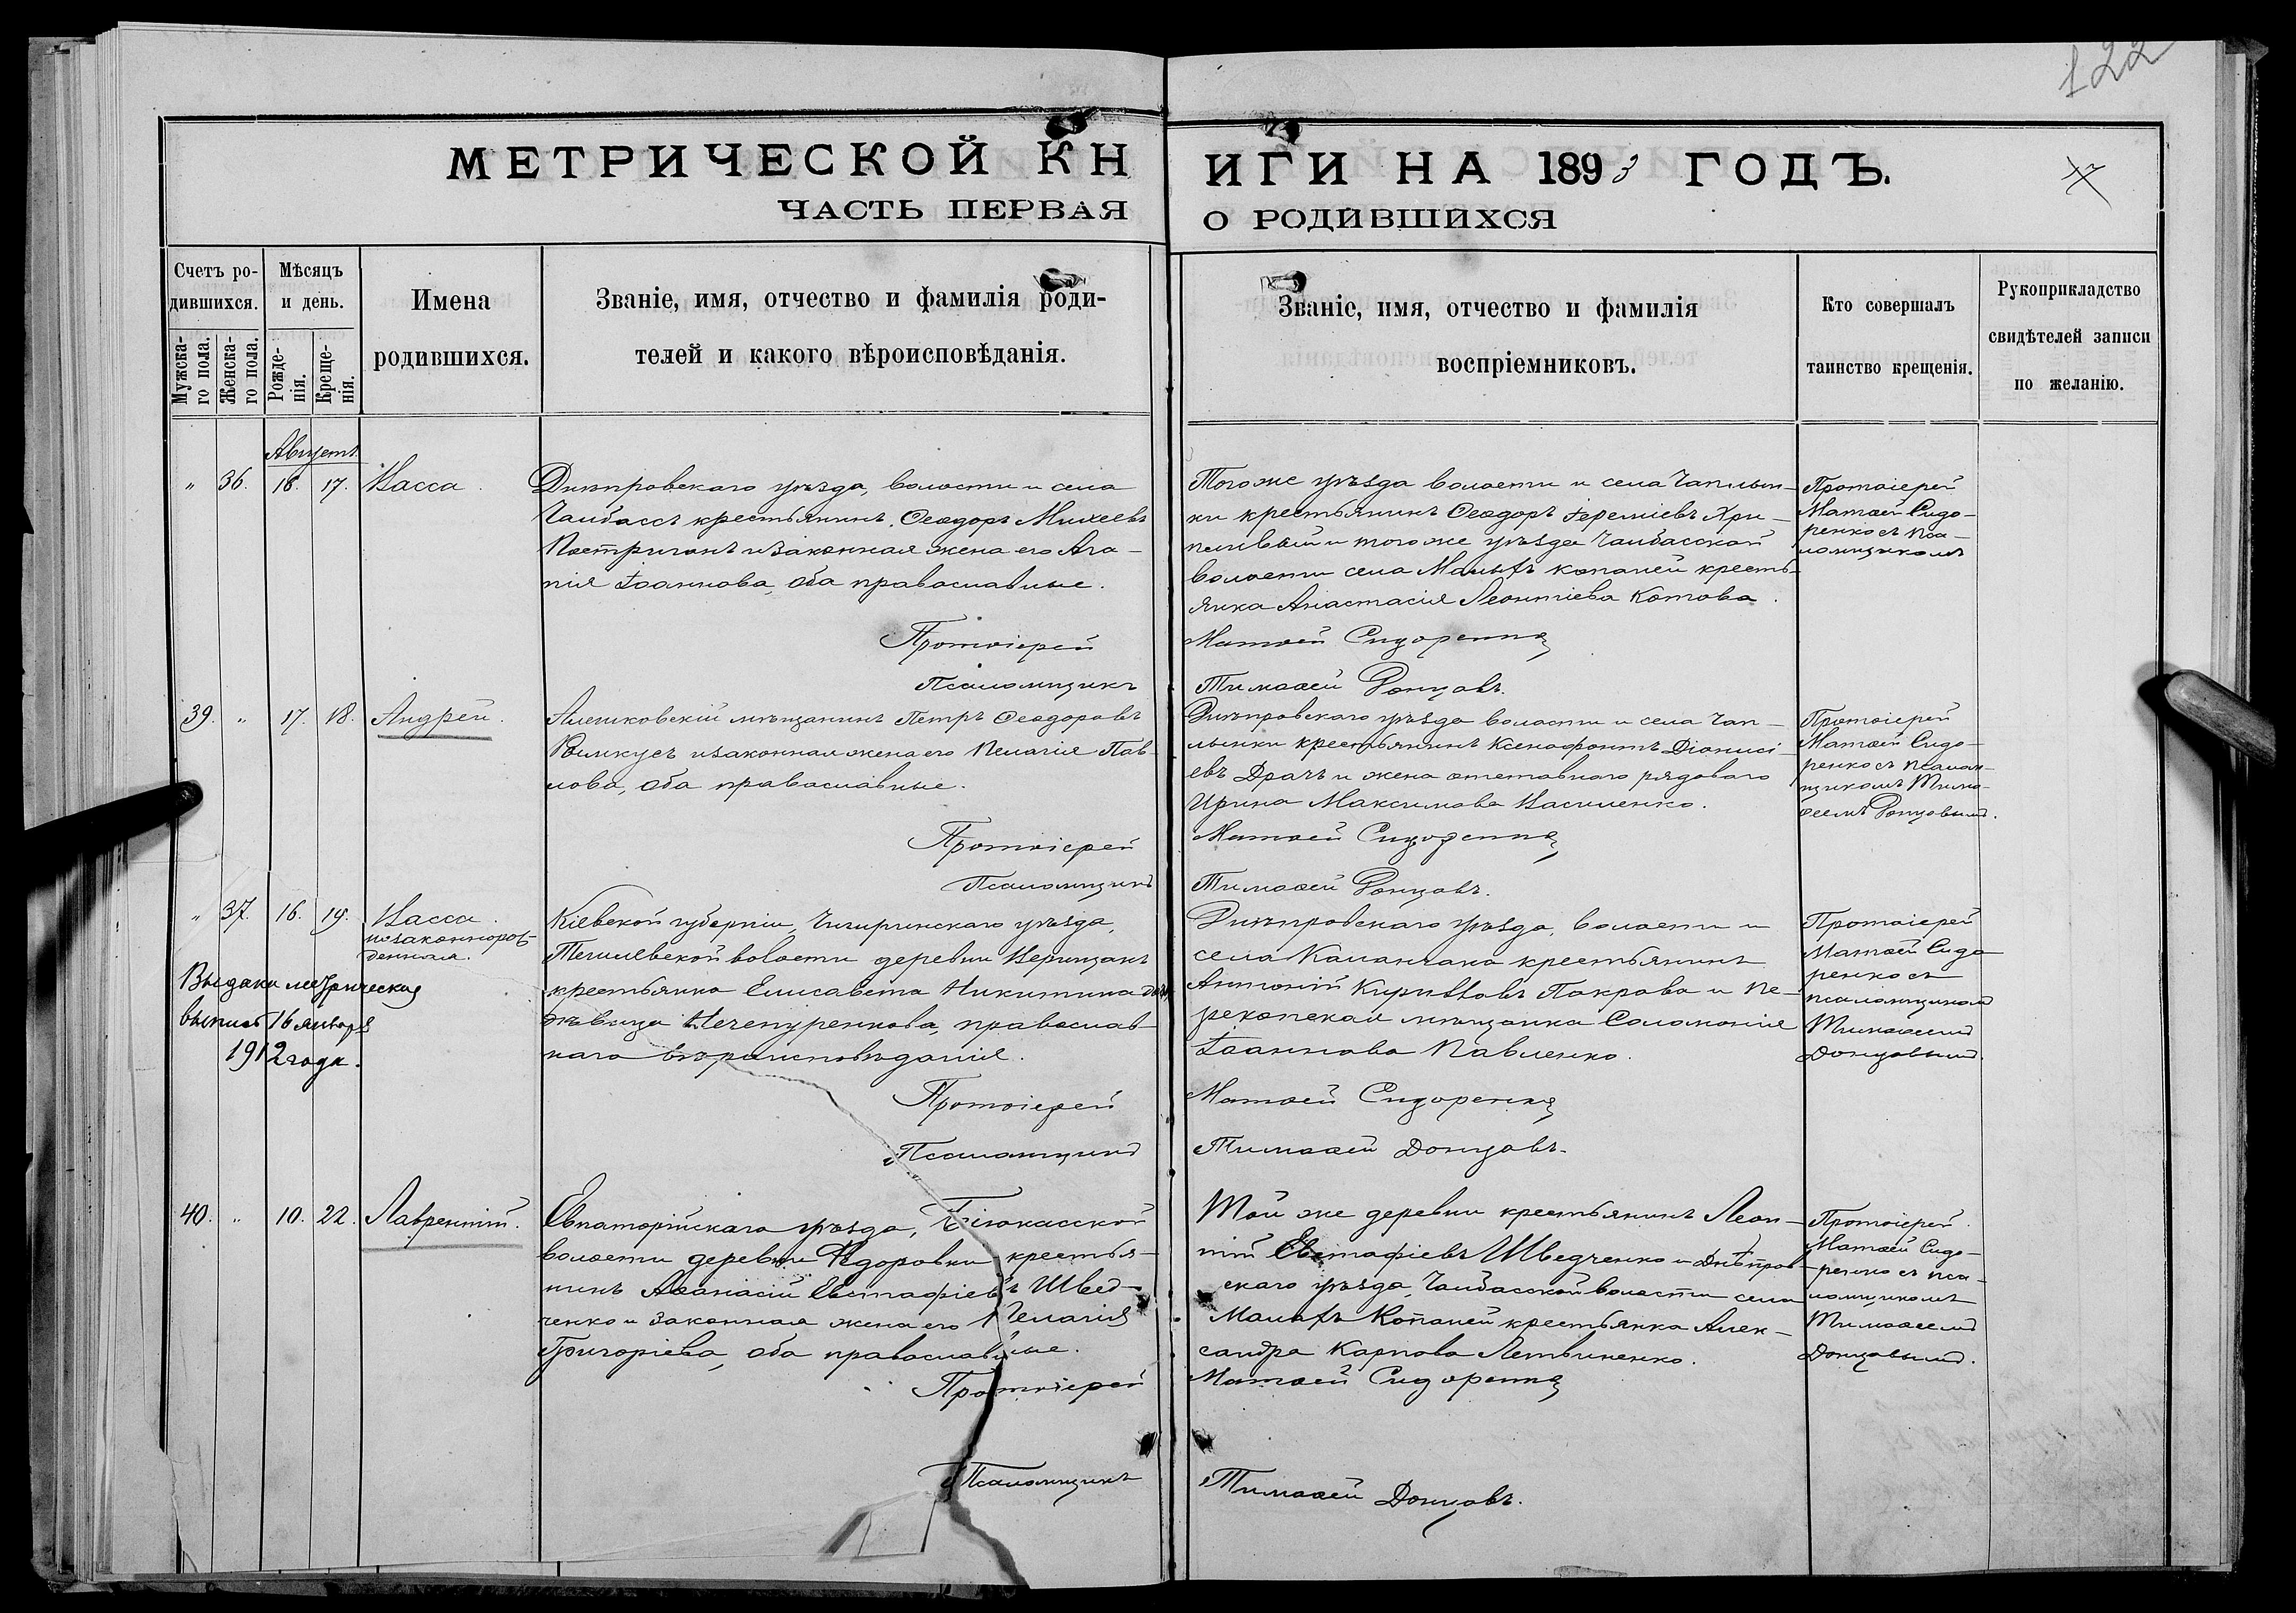 122
МЕТРИЧЕСКОЙ КНИГИ НА 1893 ГОДЪ.
ЧАСТЬ ПЕРВАЯ О РОДИВШИХСЯ
Счетъ ро-
дившихся.
Мужска-
го пола.
Женска-
го пола.
Мѣсяцъ
и день.
Рожде-
нія.
Креще-
нія.
Имена
родившихся.
Званіе, имя, отчество и фамилія роди-
телей и какого вѣроисповѣданія.
Званіе, имя, отчество и фамилія
воспріемниковъ.
Кто совершалъ
таинство крещенія.
Рукоприкладство
свидѣтелей записи
по желанію.
Августъ
" 36. 16. 17. Васса.
Днѣпровскаго уѣзда, волости и села
Чалбассъ крестьянинъ Ѳеодоръ Михеевъ
и законная жена его Ага-
пія Іоаннова, оба православные.
Протоіерей
Псаломщикъ
Того же уѣзда волости и села Чаплын-
ки крестьянинъ Ѳеодоръ Іереміевъ Хри-
и того же уѣзда Чалбасской
волости села Малыхъ Копаней кресть-
янка Анастасія Леонтіева Котова.
Матѳей Сидоренко
Тимоѳей Донцовъ.
Протоіерей
Матѳей Сидо-
ренко съ пса-
ломщикомъ
39. " 17. 18. Андрей.
Алешковскій мѣщанинъ Петръ Ѳеодоровъ
и законная жена его Пелагія Пав-
лова, оба православные.
Протоіерей
Псаломщикъ
Днѣпровскаго уѣзда волости и села Чап-
лынки крестьянинъ Ксенофонтъ Діонисі-
евъ Драчъ и жена отставного рядового
Ирина Максимова Василенко.
Матѳей Сидоренко
Тимоѳей Донцовъ.
Протоіерей
Матѳей Сидо-
ренко съ псалом-
щикомъ Тимо-
ѳеемъ Донцовымъ.
" 37. 16. 19. Васса.
незаконнорож-
денная.
Выдана метрическая
выпись 16 января
1912 года.
Кіевской губерніи, Чигиринскаго уѣзда,
волости деревни
крестьянка Елисавета Никитина
дѣвица Нечепуренкова, православ-
наго вѣроисповѣданія.
Протоіерей
Псаломщикъ
Днѣпровскаго уѣзда, волости и
села Каланчака крестьянинъ
Антоній Кирилловъ Покрова и Пе-
рекопская мѣщанка Соломонія
Іоаннова Павленко.
Матѳей Сидоренко
Тимоѳей Донцовъ.
Протоіерей
Матѳей Сидо
ренко съ
псаломщикомъ
Тимоѳеемъ
Донцовымъ.
40. " 10. 22. Лаврентій.
Евпаторійскаго уѣзда,
волости деревни Ѳедоровки крестья-
нинъ Аѳанасій Евстафіевъ Швед-
ченко и законная жена его Пелагія
Григоріева, оба православные.
Протоіерей
Псаломщикъ
Той же деревни крестьянинъ Леон-
тій Евстафіевъ Шведченко и Днѣпров-
скаго уѣзда, Чалбасской волости села
Малыхъ Копаней крестьянка Алек-
сандра Карпова Летвиненко.
Матѳей Сидоренко
Тимоѳей Донцовъ.
Протоіерей
Матѳей Сидо-
ренко съ пса-
ломщикомъ
Тимоѳеемъ
Донцовымъ.